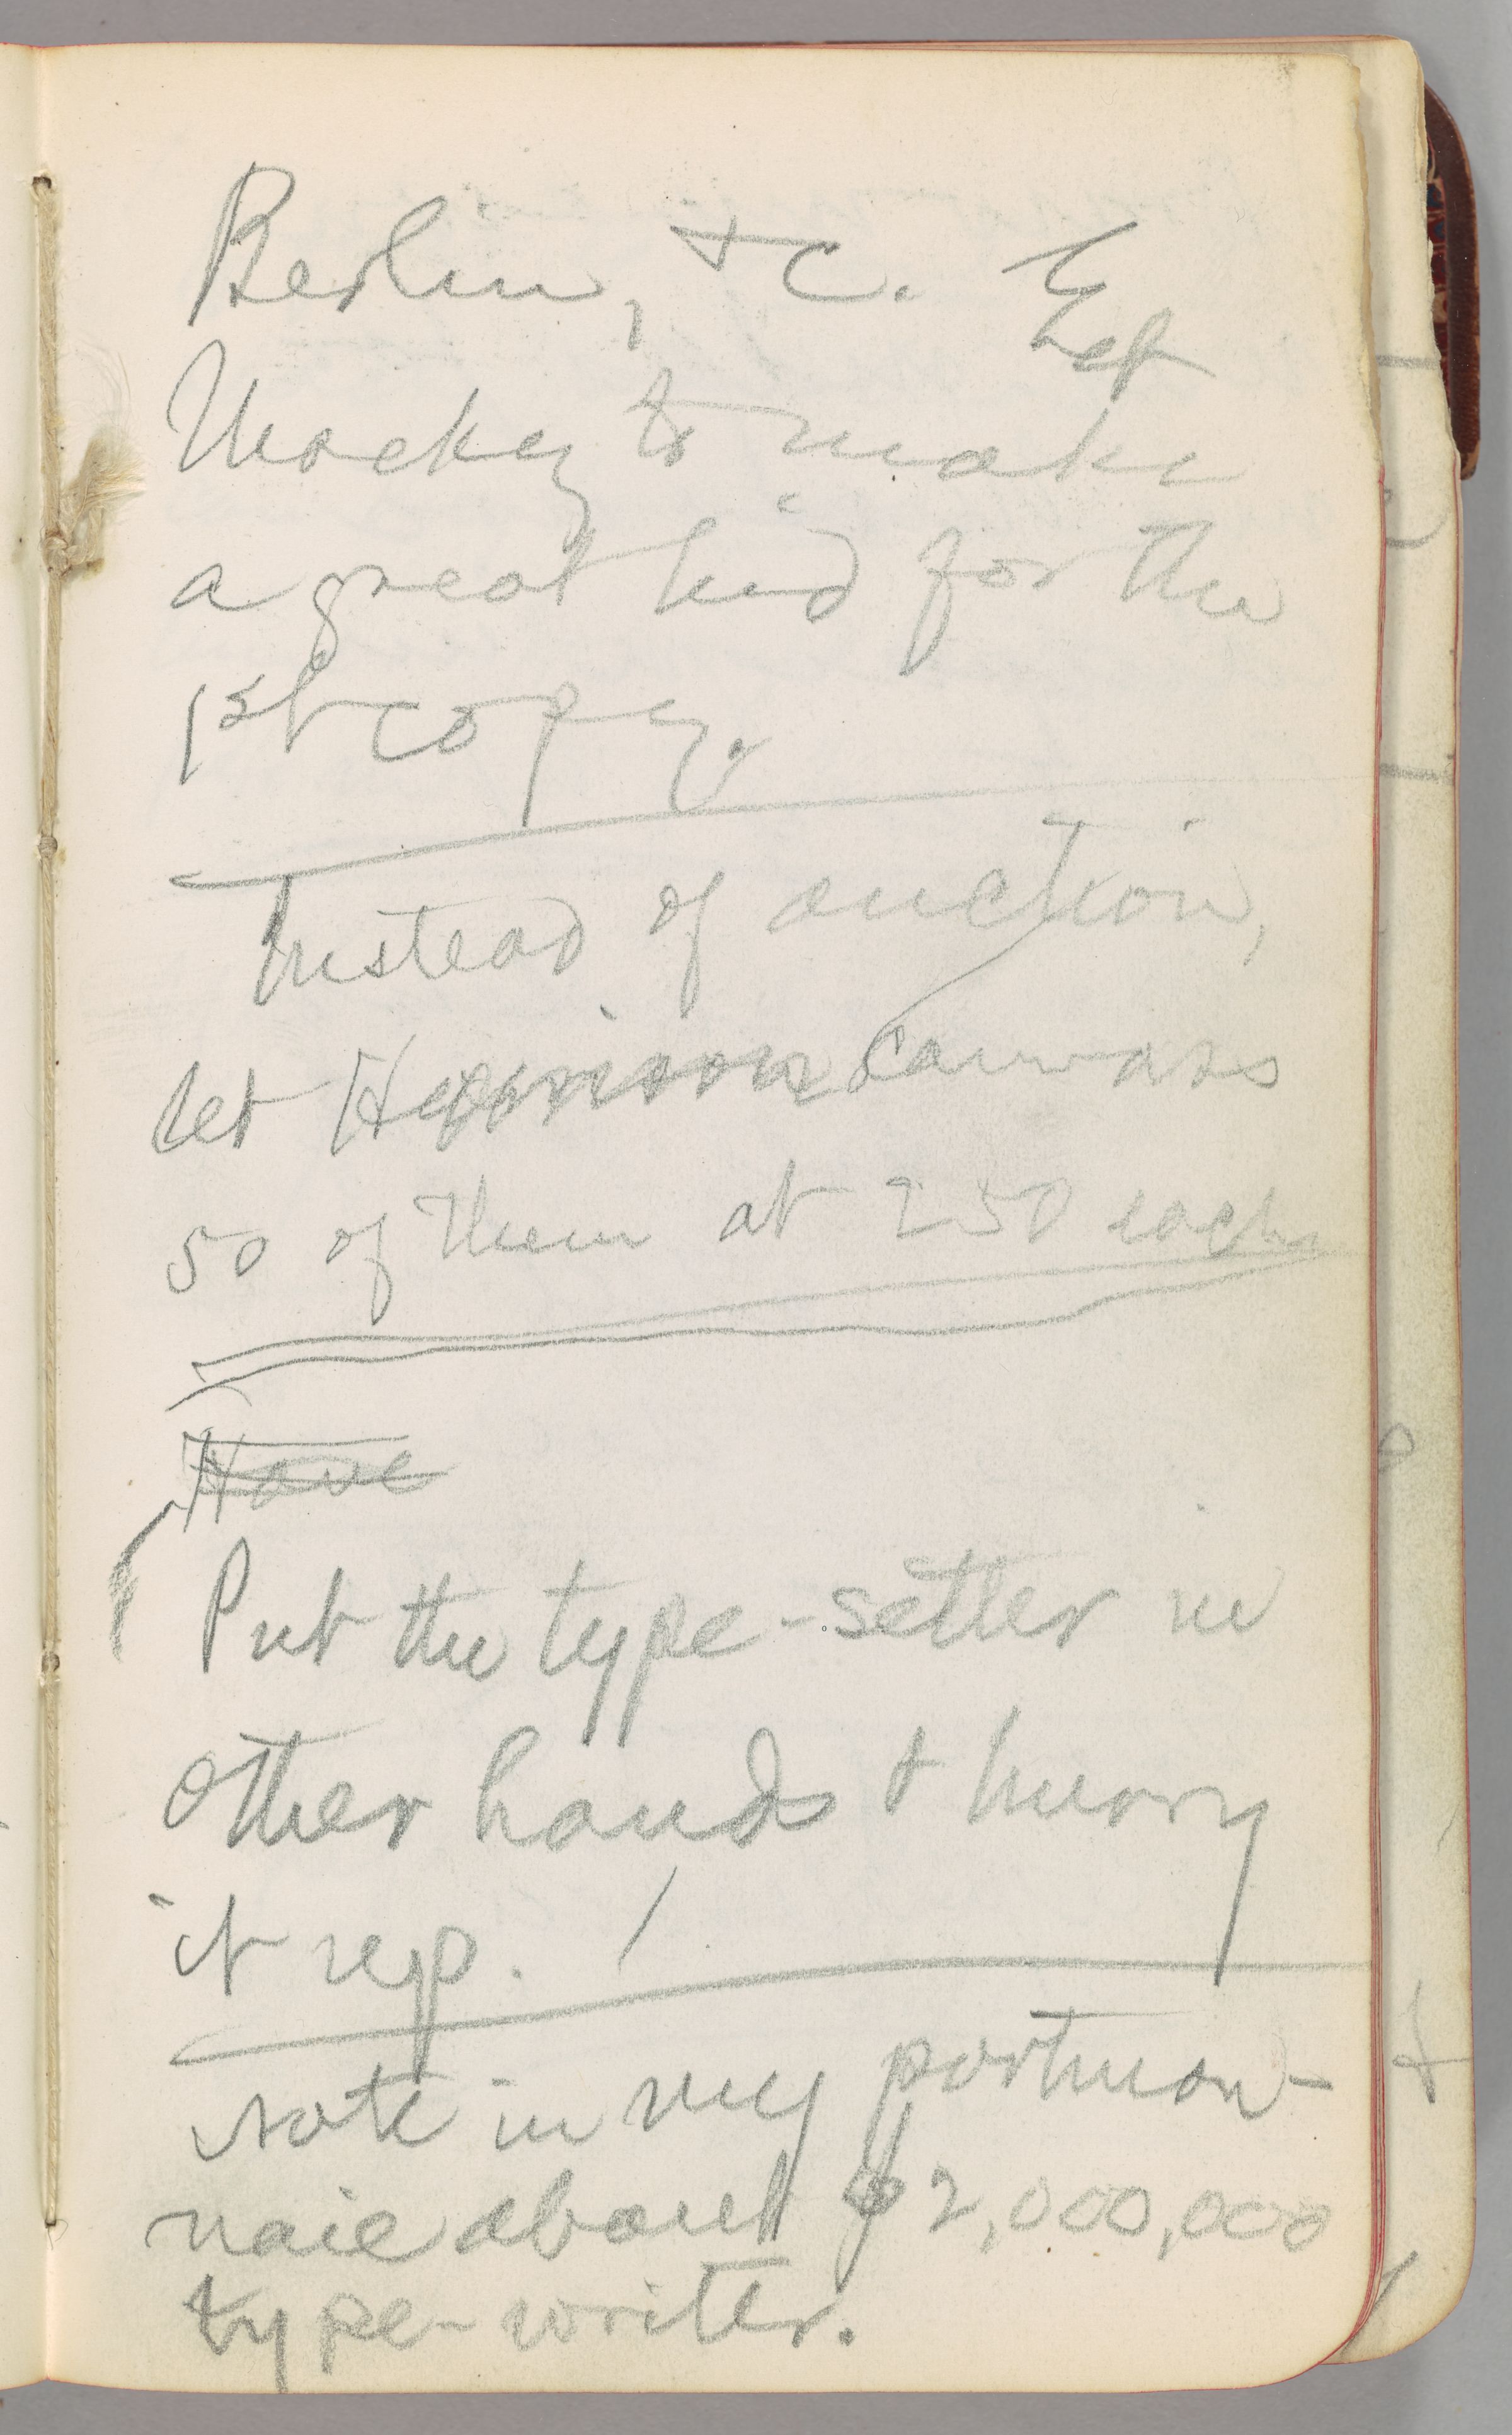 Berlin, &c. Get
Mackey to make
a great bid for the
1st copy.
Instead of auction,
let canvass
50 of them at 250 each
Have
Put the type-setter in
other hands & hurry
it up.
Note in my portmon-
naie about $2,000,000
type-writer.